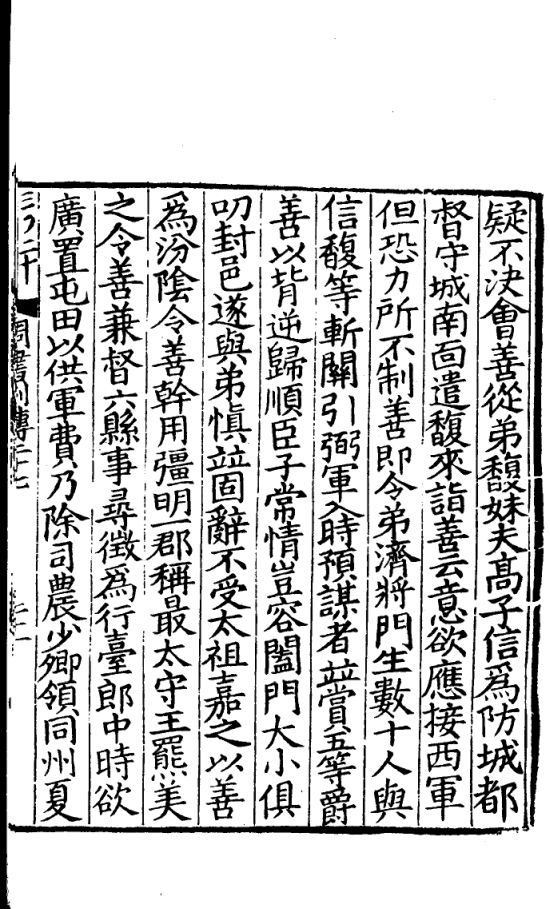 疑不決會善從弟馥妹夫髙子信爲防城都
督守城南面遣馥來詣善云意欲應接西軍
但恐力所不制善即令弟濟將門生數十人與
信馥等斬關引弼軍入時預謀者並賞五等爵
善以背逆歸順臣子常情豈容闔門大小俱
叨封邑遂與弟愼並固辭不受太祖嘉之以善
爲汾陰令善幹用彊明一郡稱最太守王羆美
之令善兼督六縣事尋徵爲行臺郎中時欲
廣置屯田以供軍費乃除司農少卿領同州夏
周書列傳二十七